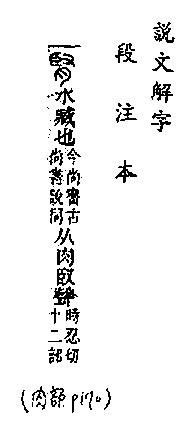 說文解字
段注本
腎水臧也今尚書古尚書說同从肉臤聲時忍切十二部
(肉 p170)